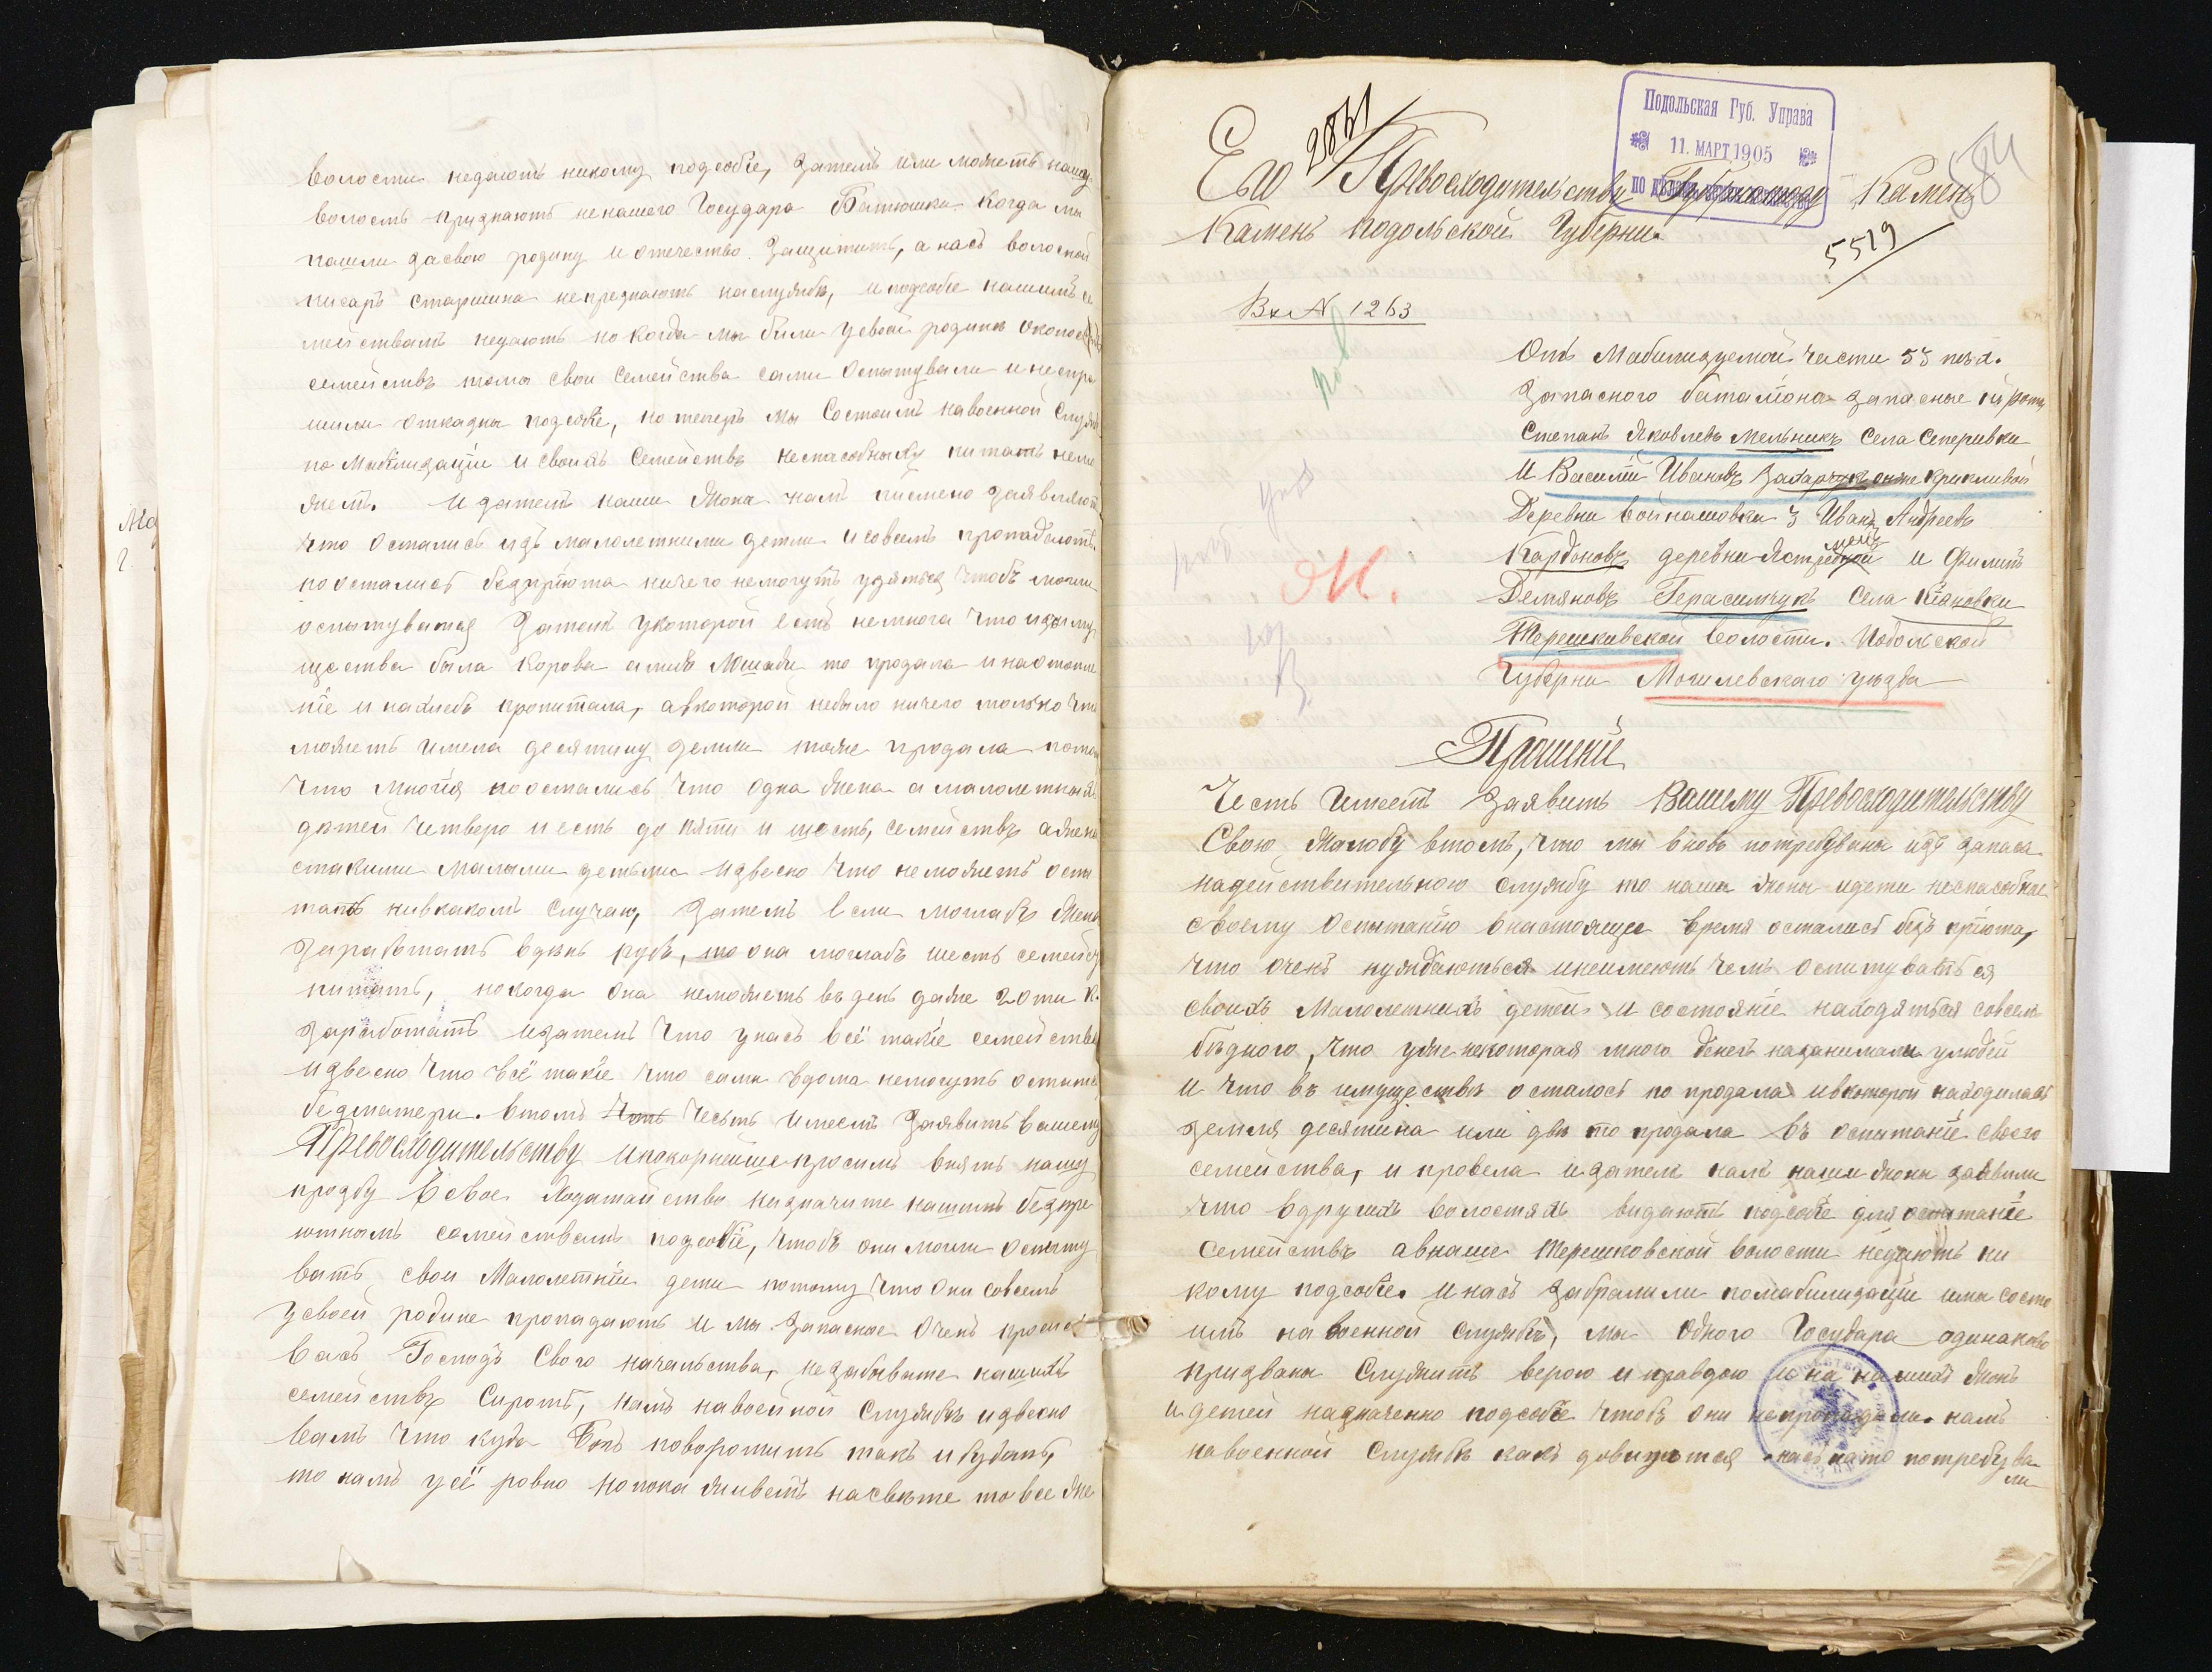 волости недають никому подсобіе, затемъ или можетъ нашу
волость признають ненашего Государя Батюшка когда мы
пошли засвою родину и отечество защитить, а насъ волостной
писарь старшина непрезнають наслужбѣ, и подсобіе нашимъ се
мействамъ недають но когда мы были усвоей родинѣ около
семействъ тома свои Семейства сами Оспытували и неспра
шили откадны подсобіе, но теперь мы Состоимъ навоенной Служб
по Мабилизаціи и своихъ Семействъ неспасобныху питать неме
жемъ. И затемъ наши Жона намъ писмено заявляютъ
что остались изъ малолетними детми и совсемъ пропадаютъ
поосталисъ безпріюта ничего немогутъ узяться чтобъ могли
оспытуватся Затемъ укоторой естъ немнога что изъиму
щества была Корова амибо Лошади то продала и наотопле
ніе и нахлебъ пропитала, авкоторой небыло ничего только что
можетъ имела десятину земли тоже продала потом
Что многія поосталисъ что одна Жена а малолетныхъ
датей четверо и есть до пяти и шесть, семействъ ажена
стакими малыми детьми извесно что неможетъ оспы
тать нивкакомъ случаю, Затемъ Если моглабъ Жена
Заработатъ вденъ рубъ, то она моглабъ шесть семейсъ
питать, нокогда Она неможетъ въ денъ даже 20ти к.
Заработатъ изатемъ что унасъ всё такіе семейства
извесно что всё такіе что сами вдома немогутъ оспыта
безматери. втомъ Честь имеемъ заявитъ вашему
Превосходительству ипокорнейше просимъ внять нашу
прозбу в свое Хозатайство назначите нашимъ безпре
ютнымъ семействамъ подсобіе, чтобъ они могли оспыту
вать свои Малолетніи дети потому что Они совсемъ
усвоей родине пропадають и мы Запасные Оченъ просимъ
васъ Господъ Свого начальства, незабывите нашихъ
семействъ Сиротъ, намъ навоейной Службѣ извесно
вамъ что куда Богъ поворотитъ такъ и будетъ,
то намъ усё ровно но пока живетъ насвѣте то все же
Его Превосходительству Губернатору Камен
Каменъ подольской Губерни.
2831
Подольская Губ. Управа
11. МАРТ 1905
584
5519
Вх № 1263
Отъ Мабилизуемой части 53 пех.
Запасного баталіона запасные роты
Степанъ Яковлевъ Мельникъ Села Сеперивки
и Василій Ивановъ Захарчукъ онже Крикливой
Деревни войнашовки 3 Иванъ Андреевъ
Кардоновъ деревни и Филипъ
Демяновъ Герасимчукъ Села Кіяновки
Терешковской волости. Подольской
Губерни Могилевскаго уѣзда
Прошеніе
Честь Имеемъ Заявить Вашему Превосходительству
Свою Жалобу втомъ, что мы вновъ потребуваны изъ запаса
надействительною службу то наши жоны идети неспасобные
своему Оспытанію внастоящее время осталисъ безъ пріюта,
что оченъ нуждаються инеимеють чемъ Оспытуватъся
своихъ Малолетнихъ детей и состояніе находяться совсемъ
беднаго, что уже некоторая много денегъ назанимали улюдей
и что въ имуществѣ осталосъ по продала ивкоторой находиласъ
Земля десятина или двѣ то продала въ оспытаніе своего
семейства, и провела изатем намъ наши жоны заявили
что вдругихъ волостяхъ выдаютъ подсобіе для оспытаніе
семействъ авнаше Терешковской волости недаютъ ни
кому подсобіе. и насъ забрали ли помабилизаціи имы состо
имъ на военной службѣ, мы Одного Государа одинаково
призваны Служить верою и правдою и на нашихъ жонъ
и детей назначенно подсобіе чтобъ они непропадали. намъ
навоенной Службѣ какъ довидится насъ нато потребува
ли